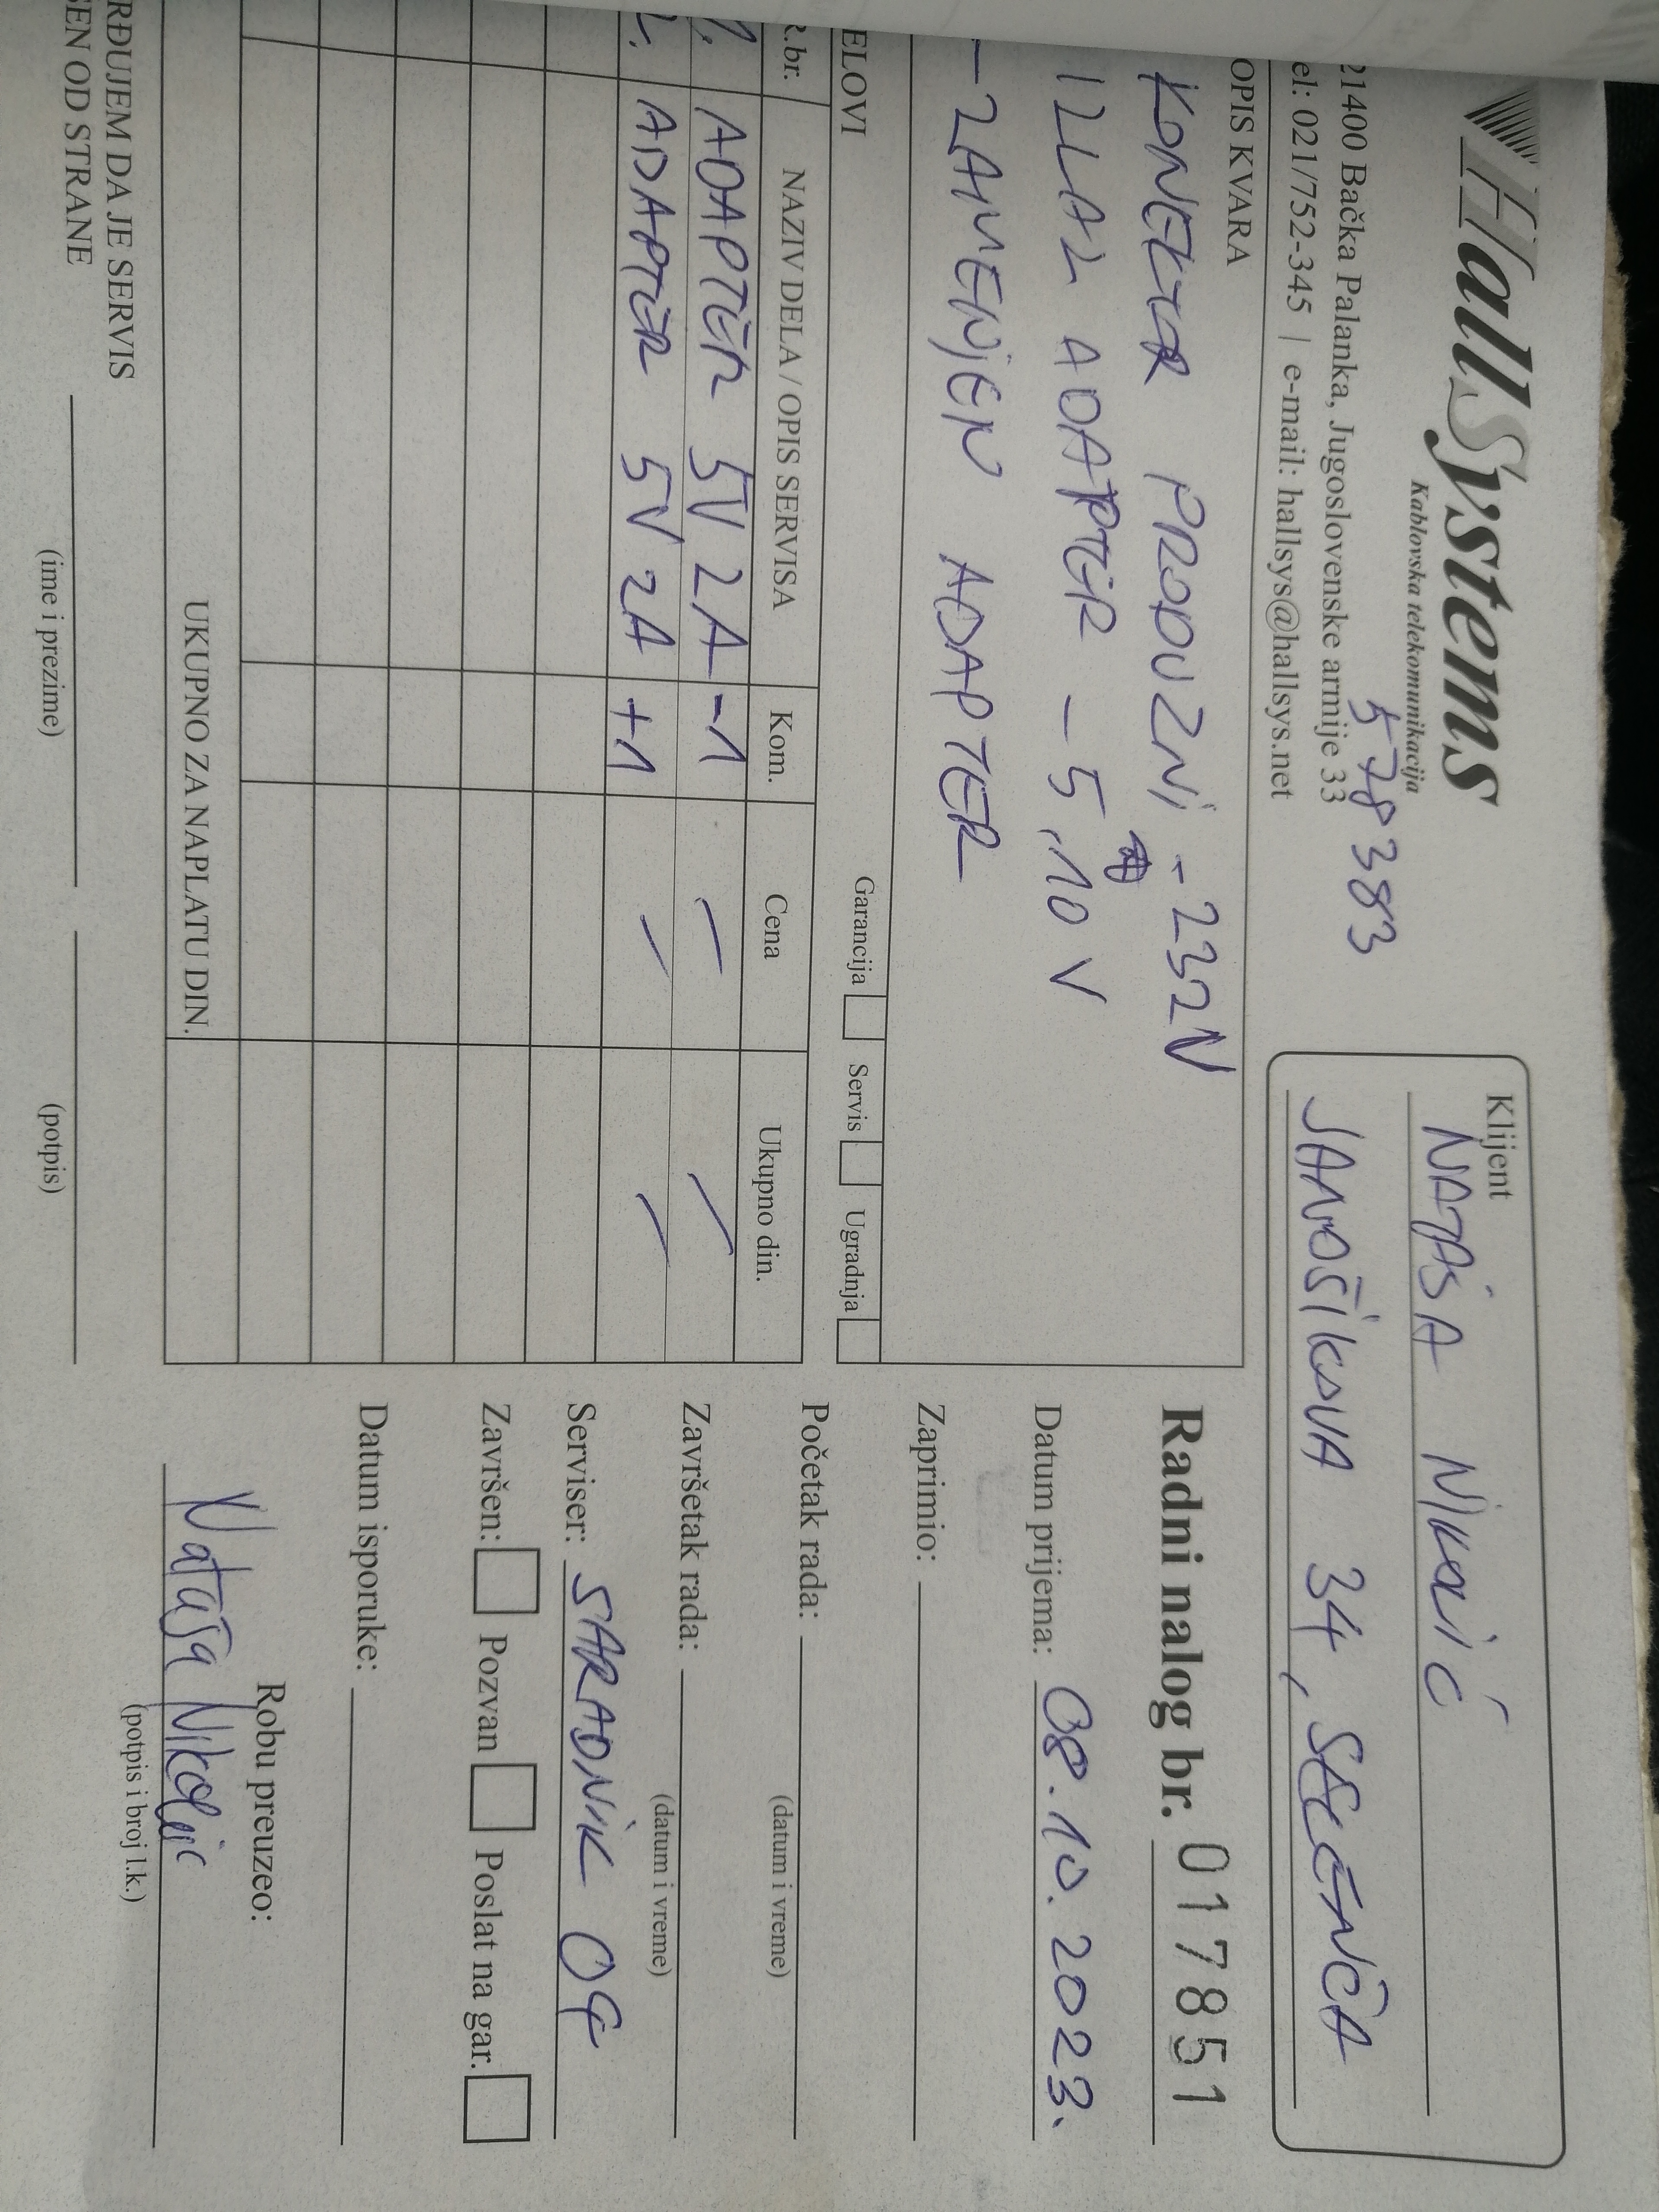 HallSystems
Kablovska telekomunikacija
578383
21400 Bačka Palanka, Jugoslovenske armije 33
el: 021/752-345 | e-mail: hallsys@hallsys.net
Klijent
NATAŠA NIKOLIĆ
JANOŠIKOVA 34, SELENČA
OPIS KVARA
KONEKTOR PRODUZNI - 232V
IZLAZ ADAPTER - 5,10 V
- ZAMENJEN ADAPTER
Garancija Servis Ugradnja
ELOVI
R.br. NAZIV DELA / OPIS SERVISA Kom. Cena Ukupno din.
1. ADAPTER 5V 2A -1 / /
2. ADAPTER 5V 2A +1 / /
UKUPNO ZA NAPLATU DIN.
RĐUJEM DA JE SERVIS
ŠEN OD STRANE
(ime i prezime) (potpis)
Radni nalog br. 017851
Datum prijema: 08.10.2023.
Zaprimio:
Početak rada:
(datum i vreme)
Završetak rada:
(datum i vreme)
Serviser: SARADNIK 09
Završen: Pozvan Poslat na gar.
Datum isporuke:
Robu preuzeo:
Nataša Nikolić
(potpis i broj l.k.)